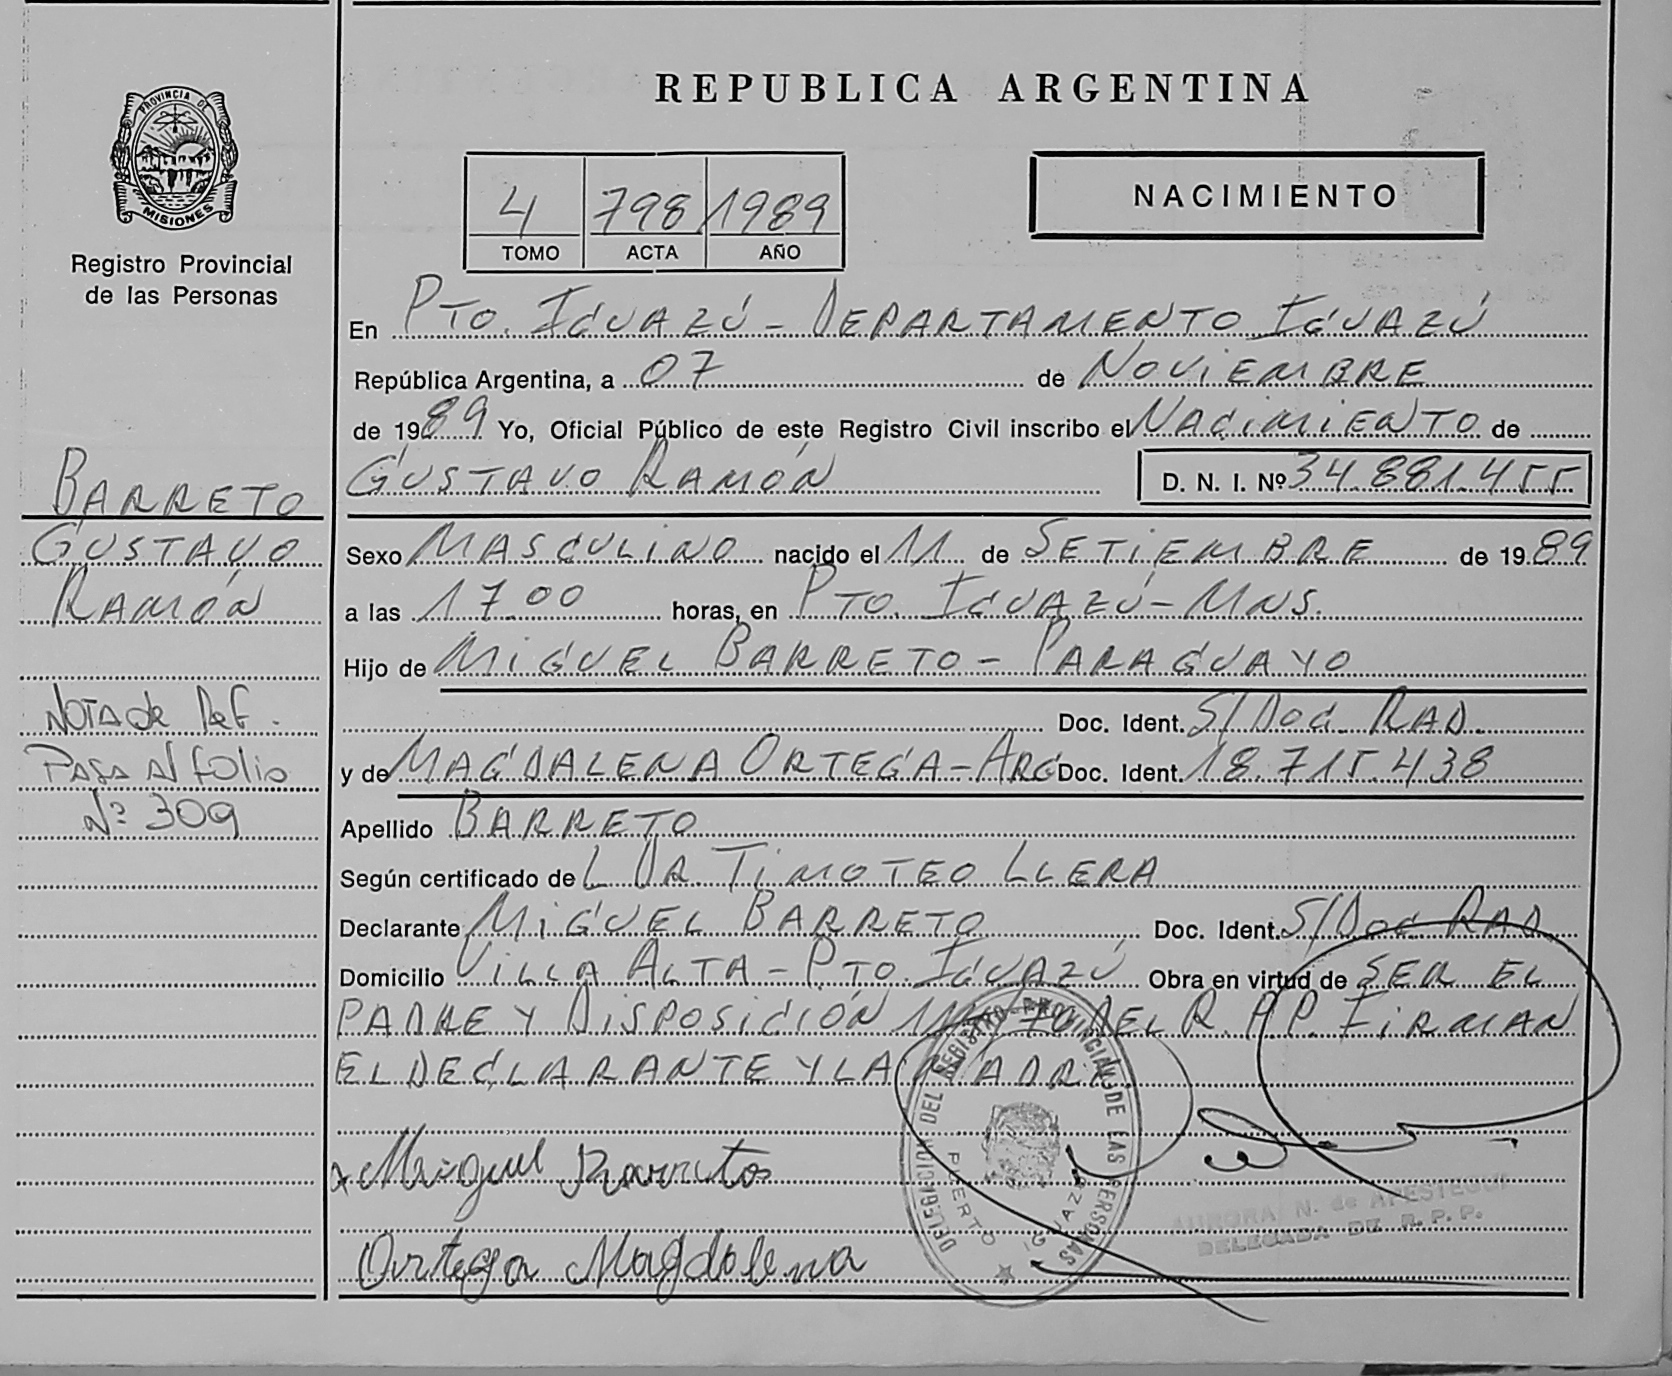 REPUBLICA ARGENTINA
PROVINCIA DE
MISIONES
Registro Provincial
de las Personas
4 798 1989
TOMO ACTA AÑO
NACIMIENTO
En PTO. IGUAZÚ - DEPARTAMENTO IGUAZÚ
República Argentina, a 07 de NOVIEMBRE
de 1989 Yo, Oficial Público de este Registro Civil inscribo el NACIMIENTO de
GUSTAVO RAMÓN D. N. I. Nº 34.881.455
BARRETO
GUSTAVO
RAMÓN
Sexo MASCULINO nacido el 11 de SETIEMBRE de 1989
a las 17 00 horas, en PTO. IGUAZÚ - MNS.
Hijo de MIGUEL BARRETO - PARAGUAYO
Doc. Ident. S/DOC. RAD.
y de MAGDALENA ORTEGA - ARG Doc. Ident. 18.715.438
NOTA de Ref.
PASA Al folio
Nº 309
Apellido BARRETO
Según certificado de L DR. TIMOTEO LLERA
Declarante MIGUEL BARRETO Doc. Ident. S/DOC RAD
Domicilio VILLA ALTA - PTO. IGUAZÚ Obra en virtud de SER EL
PADRE Y DISPOSICIÓN DEL R. P.P. FIRMAN
EL DECLARANTE Y LA MADRE
x Miguel Barreto
Ortega Magdalena
DELEGACION DEL REGISTRO PROVINCIAL DE LAS PERSONAS
PUERTO IGUAZU
AURORA N. de APESTEGUI
DELEGADA DE R. P. P.